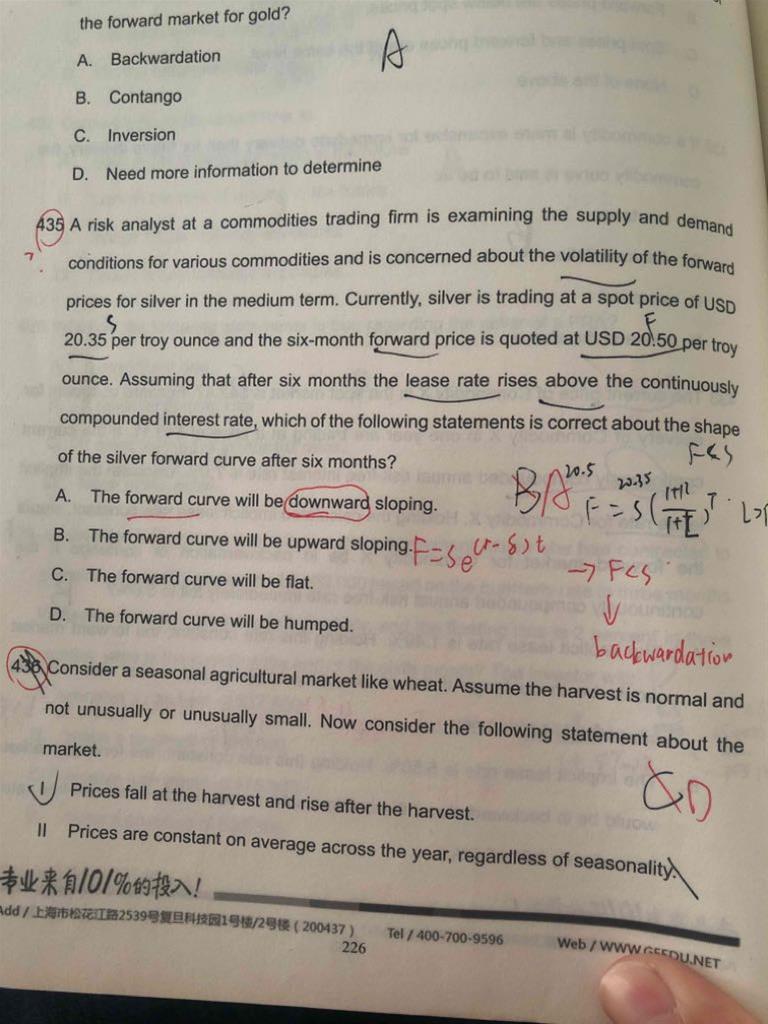 the forward market for gold?
A. Backwardation
A
B. Contango
C. Inversion
D. Need more information to determine
435 A risk analyst at a commodities trading firm is examining the supply and demand
?
conditions for various commodities and is concerned about the volatility of the forward
prices for silver in the medium term. Currently, silver is trading at a spot price of USD
S
F
20.35 per troy ounce and the six-month forward price is quoted at USD 20.50 per troy
ounce. Assuming that after six months the lease rate rises above the continuously
compounded interest rate, which of the following statements is correct about the shape
of the silver forward curve after six months?
F<S
A. The forward curve will be downward sloping.
BA
20.5
20.35
F = S(1+R/1+L)^T
B. The forward curve will be upward sloping.
F=Se^(r-δ)t
C. The forward curve will be flat.
→ F<S
↓
D. The forward curve will be humped.
backwardation
436 Consider a seasonal agricultural market like wheat. Assume the harvest is normal and
not unusually or unusually small. Now consider the following statement about the
market.
I Prices fall at the harvest and rise after the harvest.
C D
II Prices are constant on average across the year, regardless of seasonality.
专业来自101%的投入!
Add / 上海市松花江路2539号复旦科技园1号楼/2号楼 ( 200437 ) Tel / 400-700-9596 Web / WWW.GFEDU.NET
226